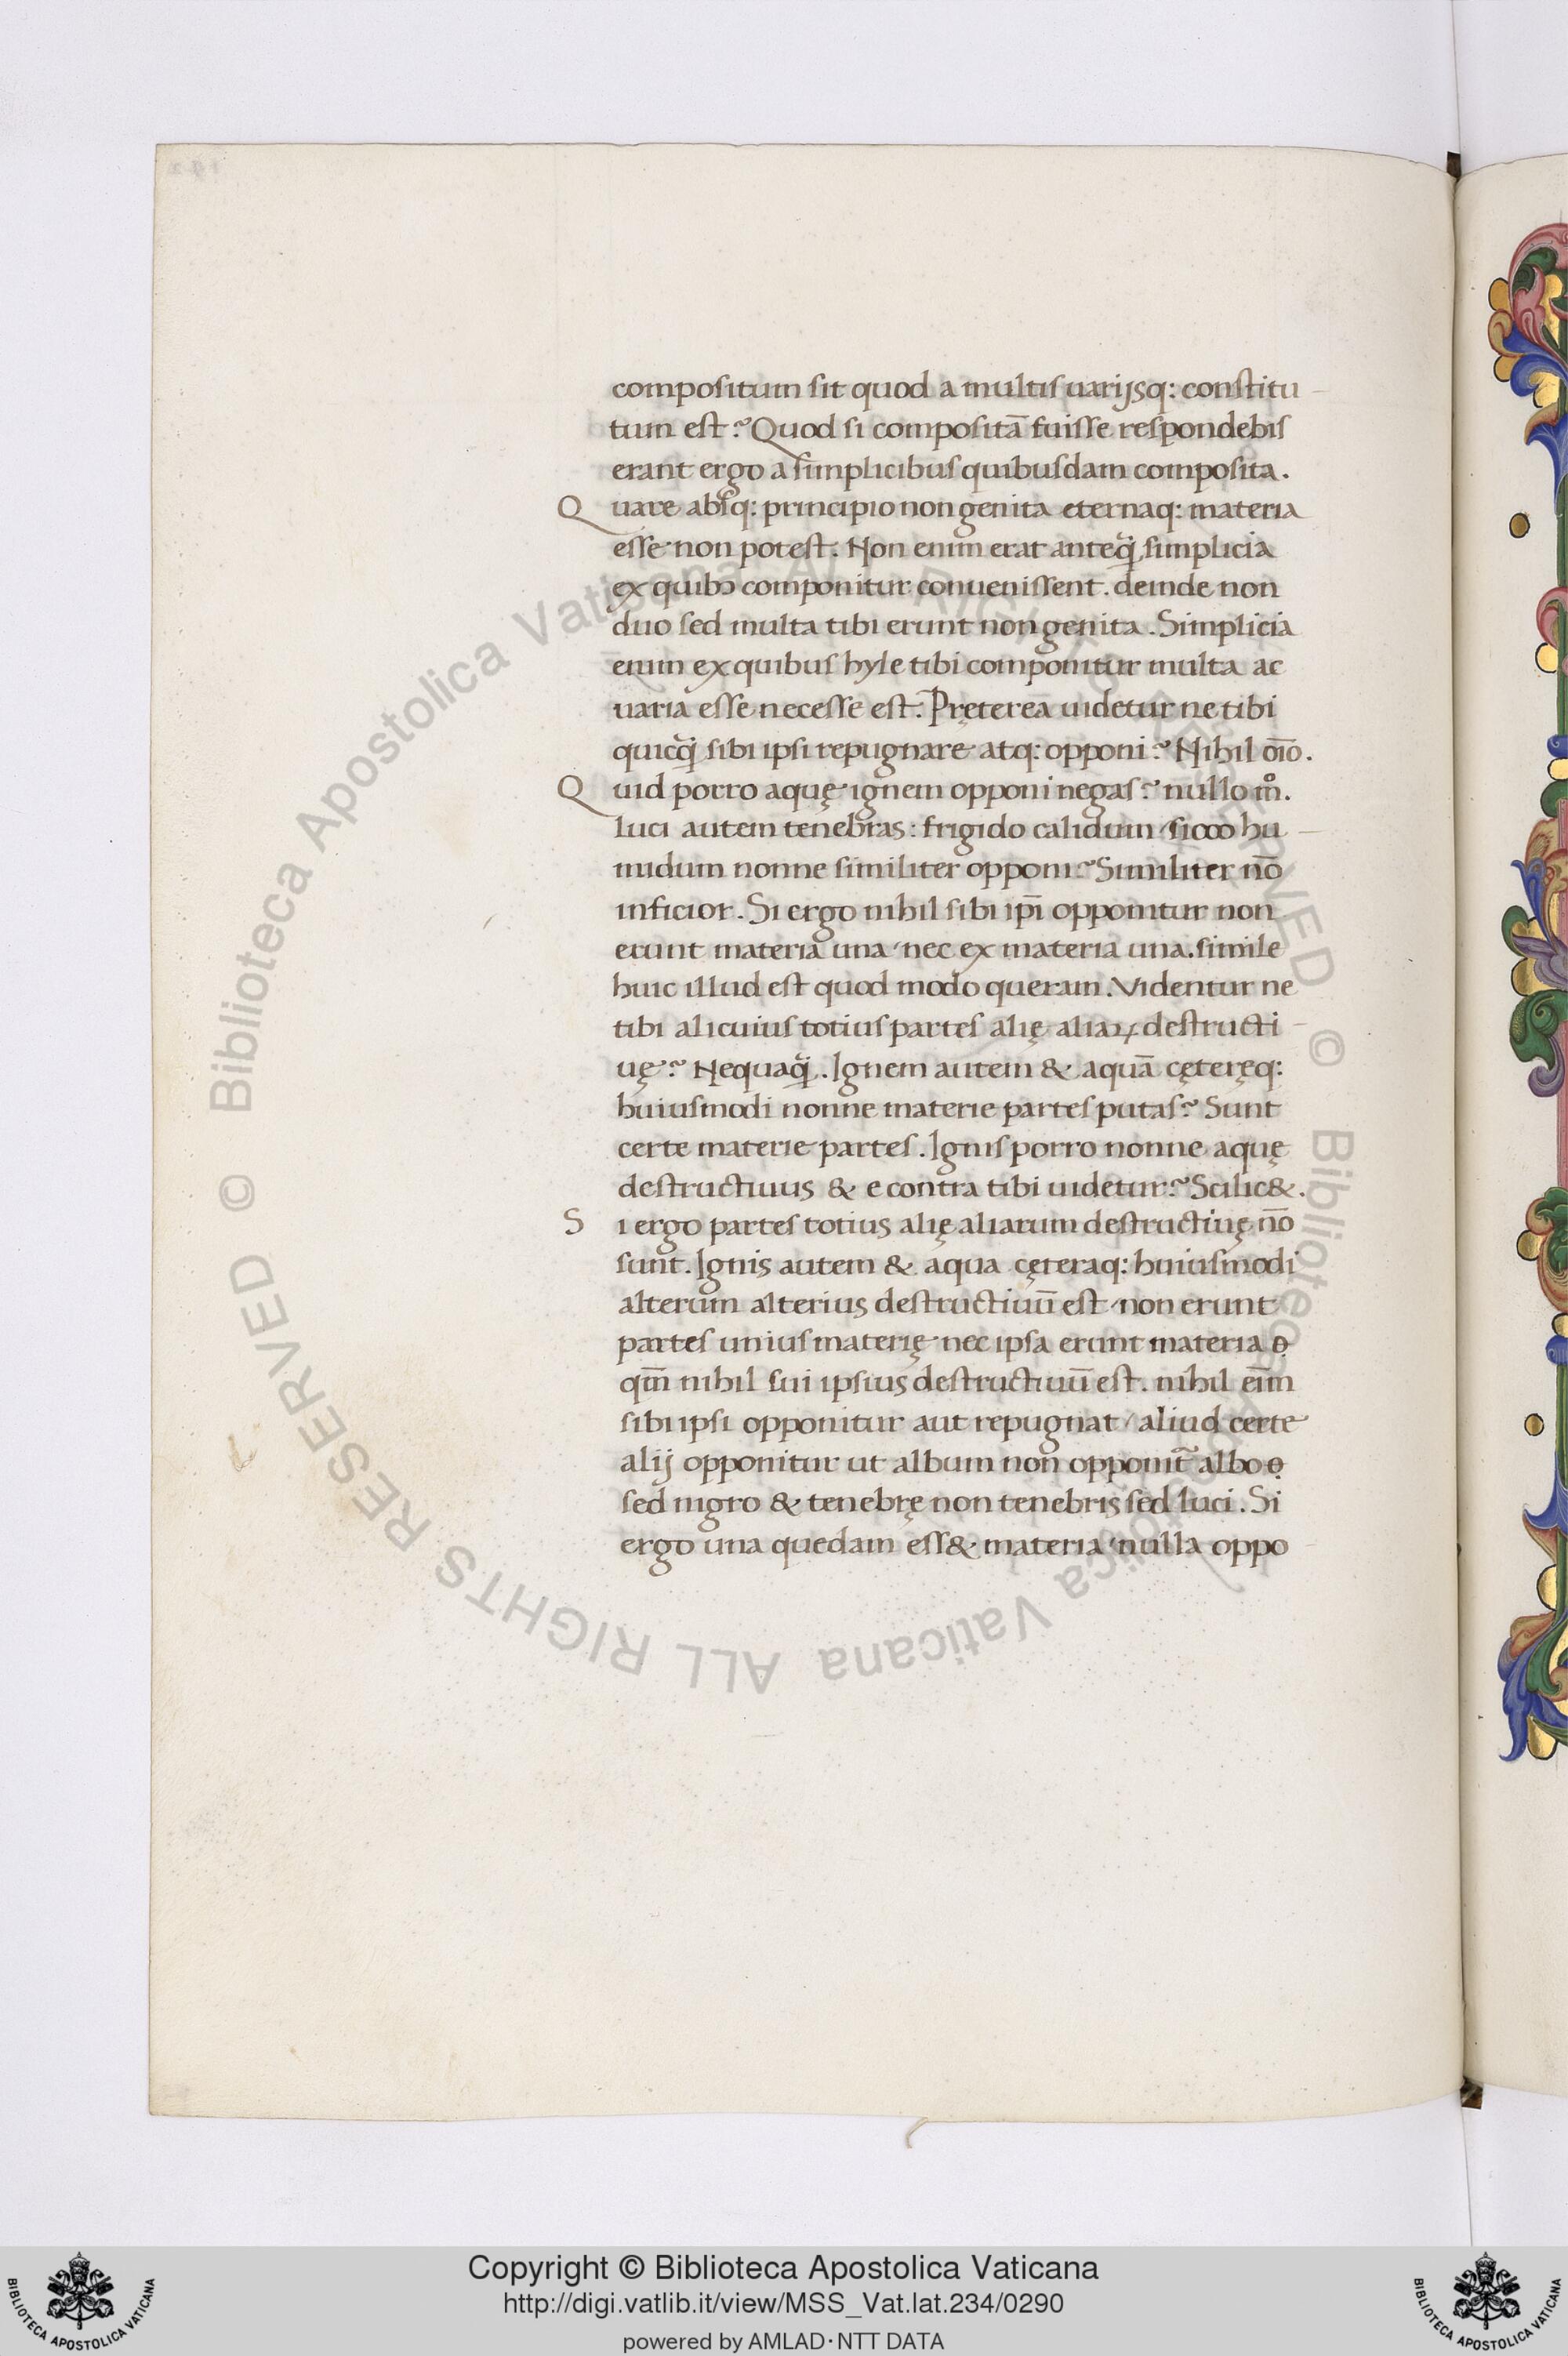 compositum sit quod a multis uarijsq: constitu
tum est? Quod si compositā fuisse respondebis
erant ergo a simplicibus quibusdam composita.
Quare absq: principio non genita eternaq: materia
esse non potest. Non enim erat anteq̃ simplicia
ex quibꝰ componitur conuenissent. deinde non
duo sed multa tibi erunt non genita. Simplicia
enim ex quibus hyle tibi componitur multa ac
uaria esse necesse est. Pręterea uidetur ne tibi
quicq̃ sibi ipsi repugnare atq: opponi? Nihil oīo.
Quid porro aquę ignem opponi negas? nullo m̊.
Luci autem tenebras: frigido calidum sicco hu
midum nonne similiter opponi? Similiter nō
inficior. Si ergo nihil sibi ip̄i opponitur non
erunt materia una nec ex materia una. simile
huic illud est quod modo queram. Videntur ne
tibi alicuius totius partes alię aliaꝝ destructi
uę? Nequaq̃. Ignem autem & aquā cęteręq:
huiusmodi nonne materie partes putas? Sunt
certe materie partes. Ignis porro nonne aquę
destructiuus & e contra tibi uidetur? Scilic&.
Si ergo partes totius alię aliarum destructiuę nō
sunt. Ignis autem & aqua cęteraq: huiusmodi
alterum alterius destructiuū est non erunt
partes unius materię nec ipsa erunt materia ọ
qm̄ nihil sui ipsius destructiuū est. nihil eīm
sibi ipsi opponitur aut repugnat / aliud certe
alij opponitur ut album non opponit᷑ albo ọ
sed nigro & tenebrę non tenebris sed luci. Si
ergo una quedam ess& materia nulla oppo
© Biblioteca Apostolica Vaticana ALL RIGHTS RESERVED © Biblioteca Apostolica Vaticana ALL RIGHTS RESERVED
Copyright © Biblioteca Apostolica Vaticana
http://digi.vatlib.it/view/MSS_Vat.lat.234/0290
powered by AMLAD·NTT DATA
BIBLIOTECA APOSTOLICA VATICANA
BIBLIOTECA APOSTOLICA VATICANA